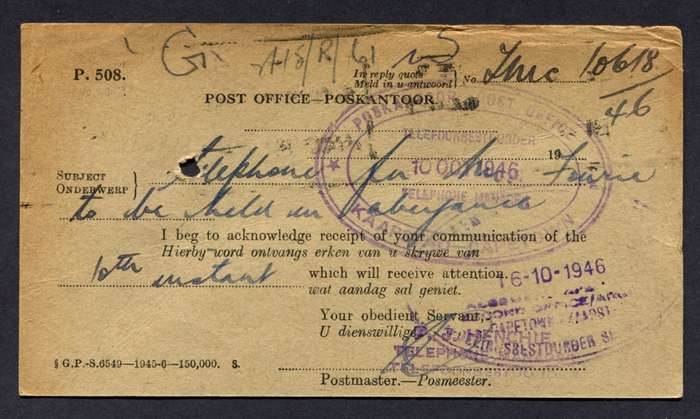 P. 508.
A18/R/61
In reply quote
Meld in u antwoord } No. 10618/46
POST OFFICE—POSKANTOOR,
POSKANTOOR POST OFFICE
TELEFOONBESTUURDER
10 OCT 1946
TELEPHONE MANAGER
19
SUBJECT
ONDERWERP } Telephone for Mr Fourie
to be held in abeyance
I beg to acknowledge receipt of your communication of the
Hierby word ontvangs erken van u skrywe van
10th instant which will receive attention.
wat aandag sal geniet.
16-10-1946
Your obedient Servant,
U dienswillige,
CAPETOWN
TELEPHONE
§ G.P.-S.6549—1945-6—150,000. S.
Postmaster.—Posmeester.